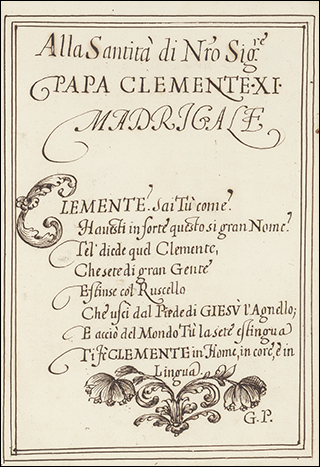 Alla Santità di Nr̃o Sig.re
PAPA CLEMENTE·XI·
MADRIGALE
CLEMENTE. Sai Tù come?
Havesti in sorte questo si gran Nome?
Tel' diede quel Clemente,
Che sete di gran Gente
Estinse col Ruscello
Che uscì dal Piede di GIESÙ l'Agnello;
E acciò del Mondo Tù la sete estingua
Ti fè CLEMENTE in Nome, in core, è in
Lingua.
G.P.